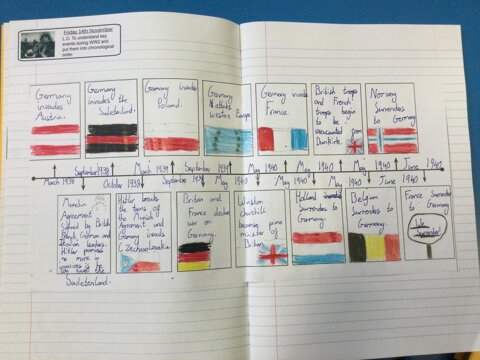 Friday 14th November
L.O. To understand key
events during WW2 and
put them into chronological
order.
Germany
invades
Austria.
Germany
invades the
Sudetenland.
Germany invades
Poland.
Germany
Attacks
Western Europe
Germany invades
France.
British troops
and French
troops begin
to be
evacuated from
Dunkirk.
Norway
Surrenders
to Germany
March 1938
September 1938
October 1938
March 1939
September 1939
September 1939
May 1940
May 1940
May 1940
May 1940
May 1940
May 1940
June 1940
June 1940
Munich
Agreement
Signed by British
French, German and
Italian leaders.
Hitler promises
no more
invasions if
can have the
Sudetenland.
Hitler breaks
the terms of
the Munich
Agreement and
Germany invades
Czechoslovakia
Britain and
France declare
war on
Germany.
Winston
Churchill
becomes prime
minister of
Britain
Holland
Surrenders to
Germany.
Belgium
Surrenders to
Germany.
France Surrenders
to Germany
We
Surrender!